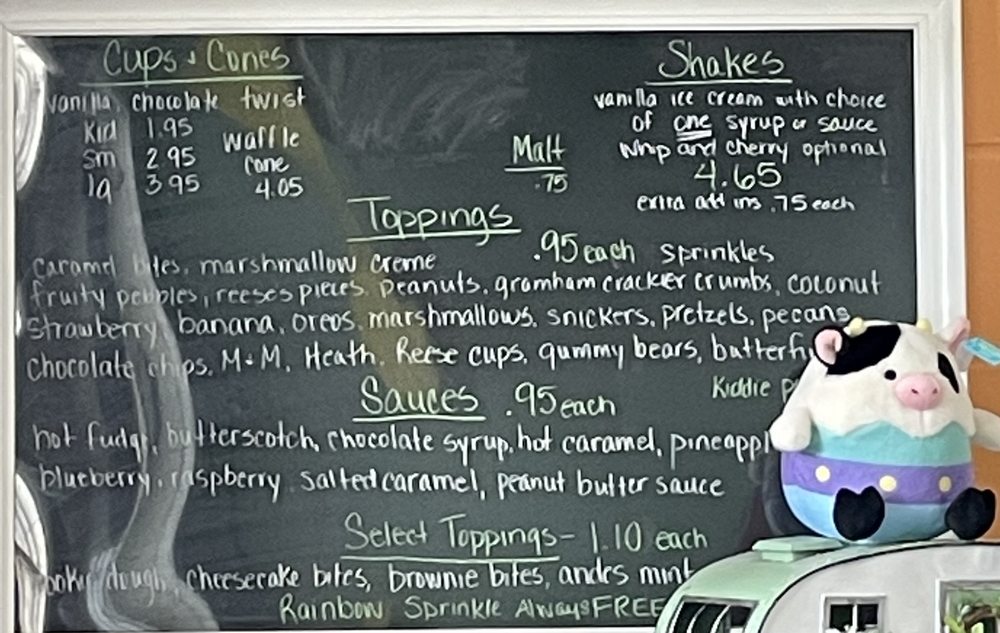 Cups & Cones
vanilla, chocolate twist
Kid 1.95
sm 2.95
lg 3.95
waffle
cone
4.05
Malt
.75
Shakes
vanilla ice cream with choice
of one syrup or sauce
whip and cherry optional
4.65
extra add ins .75 each
Toppings
.95 each sprinkles
caramel bites, marshmallow creme
fruity pebbles, reeses pieces, peanuts, gramham cracker crumbs, coconut
strawberry, banana, oreos, marshmallows, snickers, pretzels, pecans
chocolate chips, M&M, Heath, Reese cups, gummy bears,
Kiddie
Sauces .95 each
hot fudge, butterscotch, chocolate syrup, hot caramel,
blueberry, raspberry, salted caramel, peanut butter sauce
Select Toppings - 1.10 each
dough, cheesecake bites, brownie bites, andes mint
Rainbow Sprinkle Always FREE